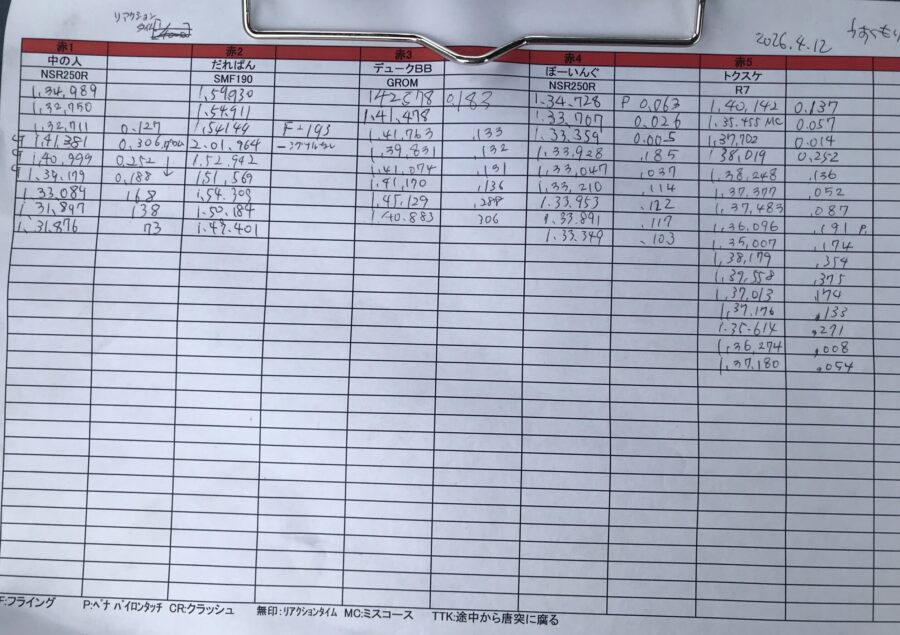 リアクション
タイム
2026.4.12
赤1 赤2 赤3 赤4 赤5
中の人 だれぱん デュークBB ぼーいんぐ トクスケ
NSR250R SMF190 GROM NSR250R R7
1,34,989 1,59930 142578 0,183 1.34.728 P 0.063 1,40,142 0.137
1,32,750 1.54.911 1,41,478 1.33.707 0.026 1,35.455 MC 0.057
1.32,711 0.127 1,54144 F-193 1,41,763 ,133 1.33.359 0.005 1,37,702 0.014
1,41,381 0.306 2.01,964 1,39,831 ,132 1,33,928 .185 1,38,019 0.252
1,40,999 0,252 ↓ 1.52.942 1,41,074 ,131 1,33,047 ,037 1,38,248 ,136
1,34,179 0,188 ↓ 1,51,569 1,41,170 ,136 1,33,210 ,114 1,37,377 ,052
1,33,084 168 1,54,309 1,45,129 ,288 1,33,953 ,122 1,37,483 ,087
1,31,897 138 1.50.184 1,40.883 306 1.33.891 ,117 1,36,096 ,191 P,
1.31.876 73 1.49.401 1.33.349 .103 1,35,007 ,174
1,38,179 ,354
1,39,558 ,375
1,37,013 ,174
1,37.176 ,133
1.35.614 ,271
1,36,274 ,008
1,37,180 ,054
F:フライング P:ペナ パイロンタッチ CR:クラッシュ 無印:リアクションタイム MC:ミスコース TTK:途中から唐突に腐る